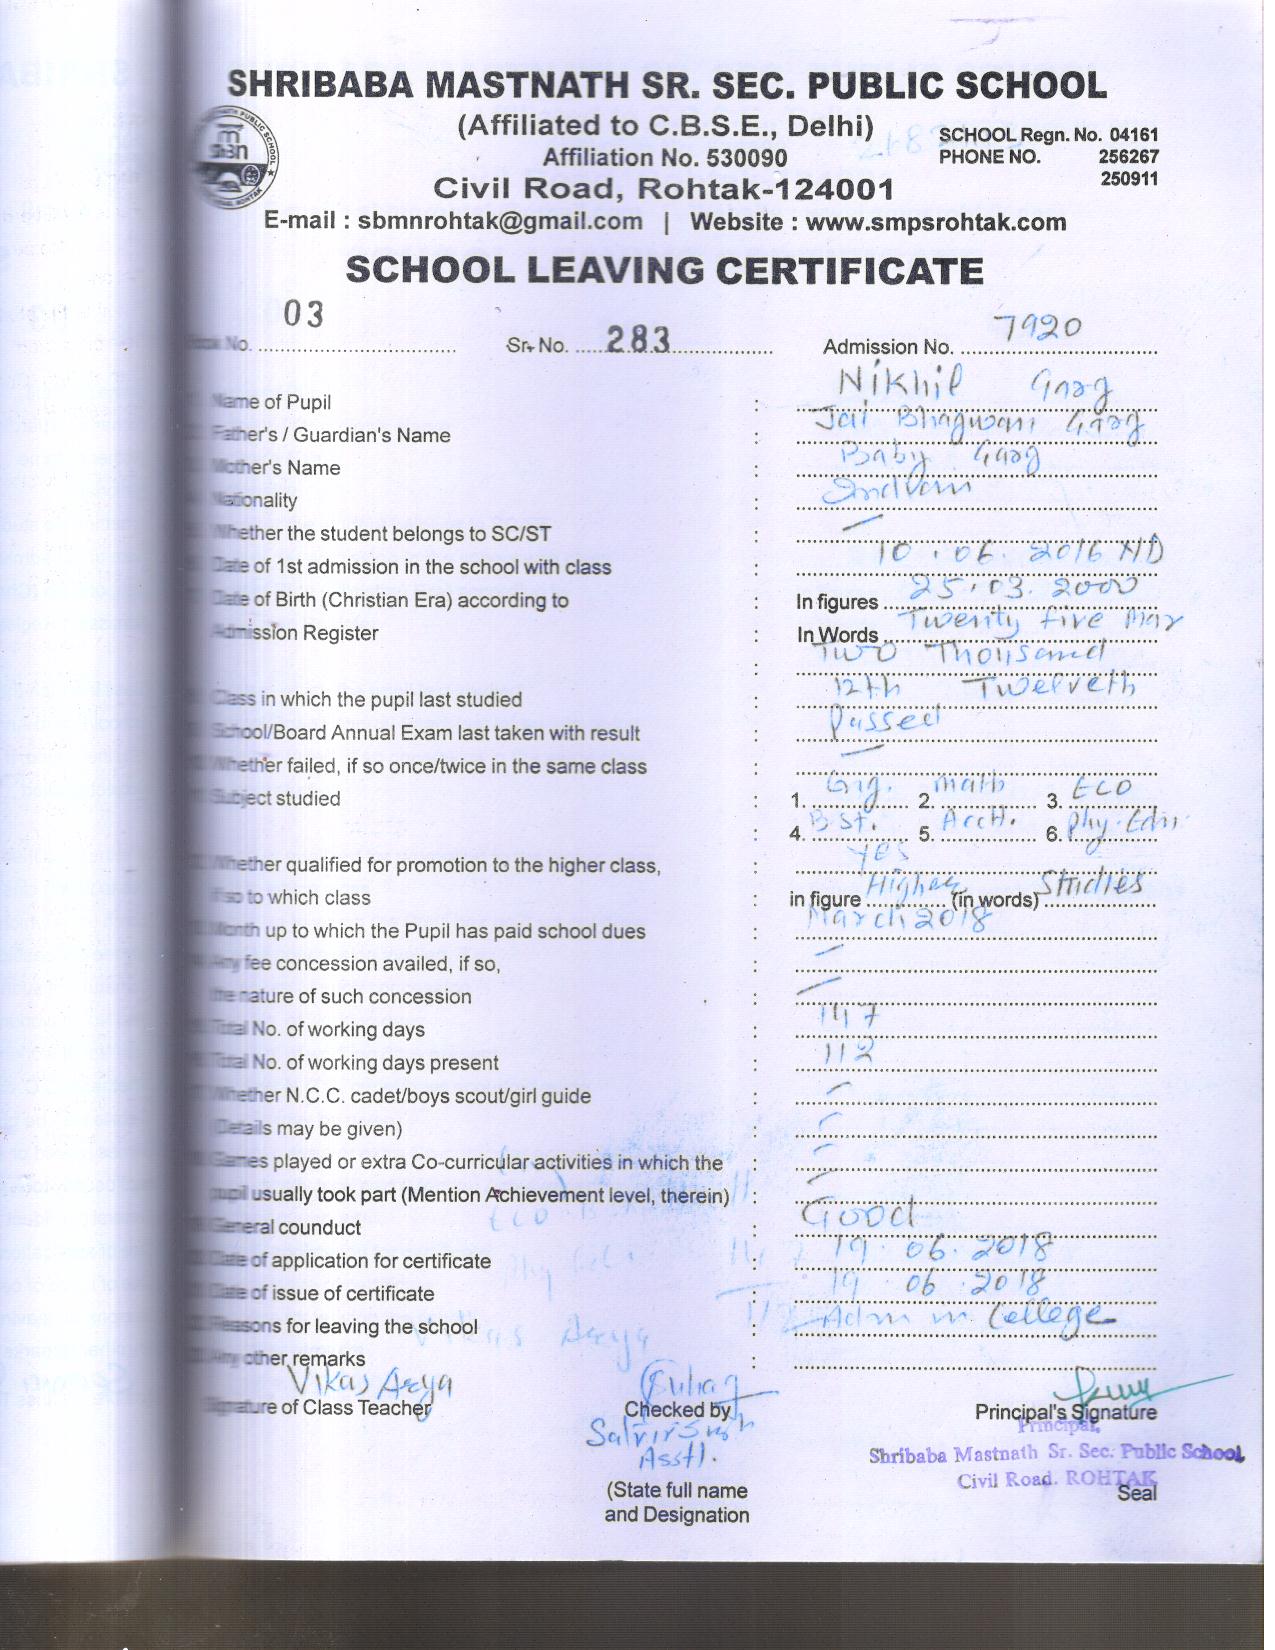 SHRIBABA MASTNATH SR. SEC. PUBLIC SCHOOL
(Affiliated to C.B.S.E., Delhi)
SCHOOL Regn. No. 04161
Affiliation No. 530090
PHONE NO. 256267
250911
Civil Road, Rohtak-124001
E-mail : sbmnrohtak@gmail.com | Website : www.smpsrohtak.com
SCHOOL LEAVING CERTIFICATE
No. 03 Sr. No. 283 Admission No. 7920
Name of Pupil : Nikhil Garg
Father's / Guardian's Name : Jai Bhagwan Garg
Mother's Name : Baby Garg
Nationality : Indian
Whether the student belongs to SC/ST : —
Date of 1st admission in the school with class : 10.06.2016
Date of Birth (Christian Era) according to : In figures 25.03.2000
Admission Register : In Words Twenty five Mar
: Two Thousand
Class in which the pupil last studied : 12th Twelveth
School/Board Annual Exam last taken with result : Passed
Whether failed, if so once/twice in the same class : —
Subject studied : 1. Eng. 2. Math 3. ECO
: 4. B.St. 5. Acctt. 6. Phy. Edu.
Whether qualified for promotion to the higher class, : Yes
If so to which class : in figure Higher (in words) Studies
Month up to which the Pupil has paid school dues : March 2018
Any fee concession availed, if so, : —
the nature of such concession : —
Total No. of working days : 147
Total No. of working days present : 112
Whether N.C.C. cadet/boys scout/girl guide : —
(Details may be given) : —
Games played or extra Co-curricular activities in which the : —
pupil usually took part (Mention Achievement level, therein) : —
General counduct : Good
Date of application for certificate : 19.06.2018
Date of issue of certificate : 19.06.2018
Reasons for leaving the school : Adm in College
Any other remarks :
Vikas Arya
Signature of Class Teacher Checked by Principal's Signature
Asstt.
Principal,
Shribaba Mastnath Sr. Sec. Public School,
Civil Road, ROHTAK
Seal
(State full name
and Designation